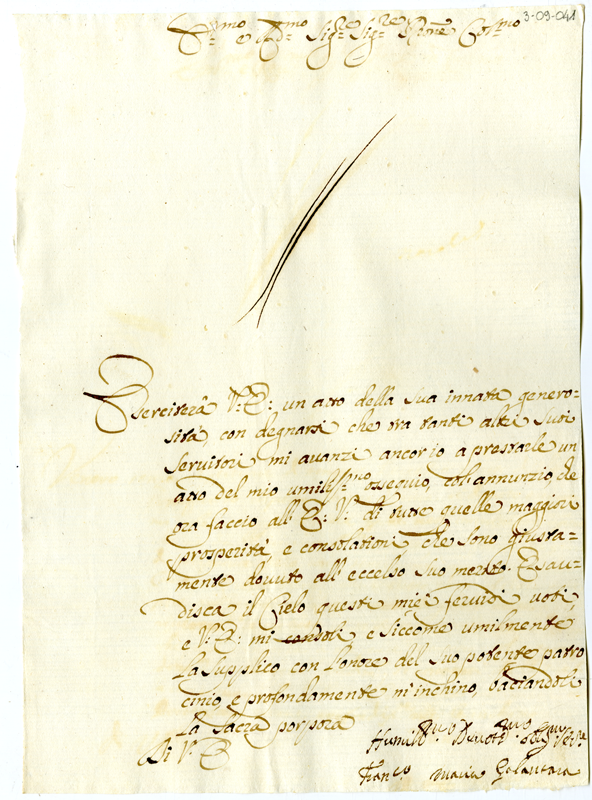 3-09-041
Em.mo e R.mo Sig.re Sig.re Pron̄e Col.mo
Esercitera V.E: un atto della sua innata genero-
sità con degnarsi che tra tanti altri suoi
servitori mi avanzi ancor io a prestarle un
atto del mio umiliss.mo ossequio, coll'annunzio, che
ora faccio all'E:V: di tutte quelle maggiori
prosperità, e consolationi, che sono giusta-
mente dovute all'eccelso suo merito. Esau-
disca il Cielo questi miei fervidi voti,
e V:E: mi consoli e siccome umilmente
la supplico con l'onore del suo potente patro
cinio, e profondamente m'inchino, baciandole
la Sacra porpora
Di V:E
Humiliss.mo Devotiss.mo obblig.mo Ser.re
Fran.co Maria Galantara